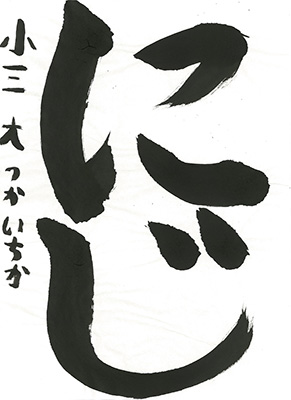 にじ
小三 大つかいちか